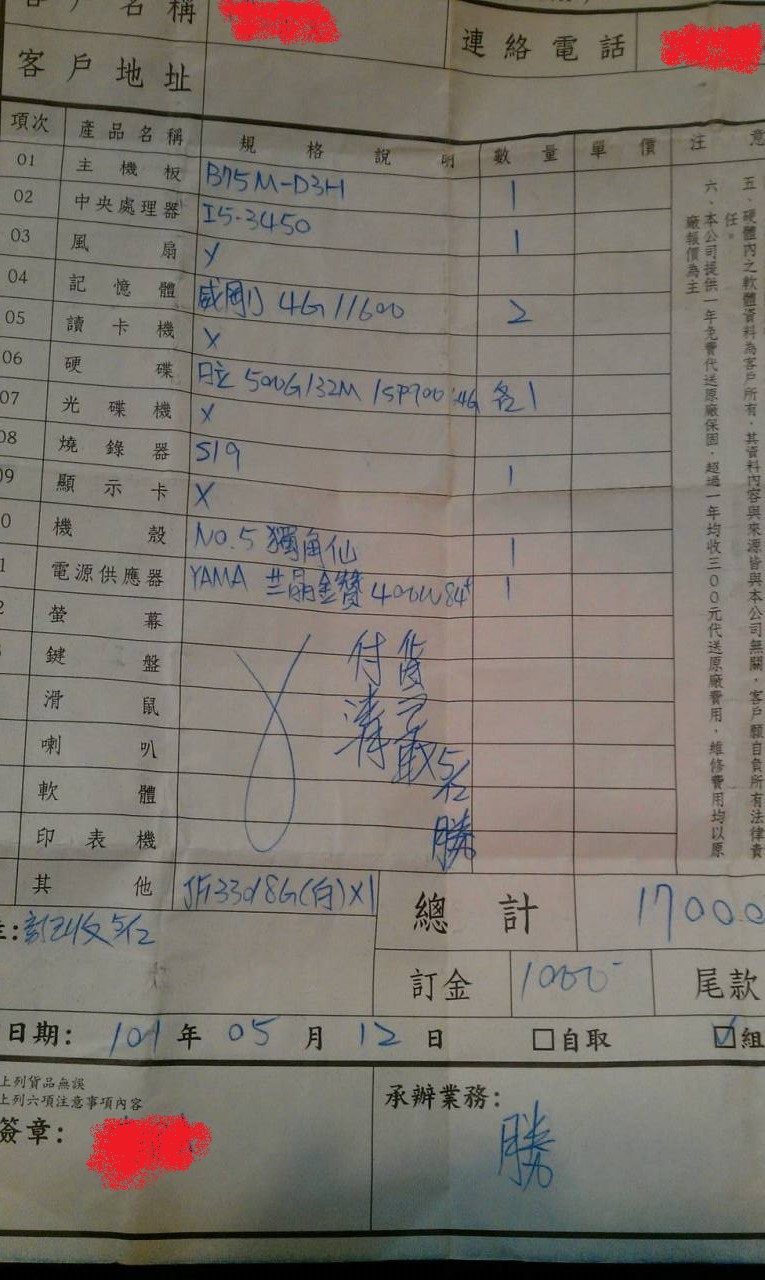 客戶名稱
連絡電話
客戶地址
項次 產品名稱 規格說明 數量 單價 注意
01 主機板 B75M-D3H 1
02 中央處理器 I5-3450 1
03 風扇 X
04 記憶體 威剛 4G 1600 2
05 讀卡機 X
06 硬碟 日立 500G/32M 各1
07 光碟機 X
08 燒錄器 S19 1
09 顯示卡 X
0 機殼 NO.5 獨角仙 1
1 電源供應器 YAMA 金贊 400W 84+ 1
2 螢幕
鍵盤
滑鼠
喇叭
軟體
印表機
其他 8G(白)X1
付清
貨取
5/12
勝
五、硬體內之軟體資料為客戶所有，其資料內容與來源皆與本公司無關，客戶願自負所有法律責
任。
六、本公司提供一年免費代送原廠保固，超過一年均收三00元代送原廠費用，維修費用均以原
廠報價為主
總計 17000
5/12
訂金 1000- 尾款
日期: 101 年 05 月 12 日 □自取 ☑組
上列貨品無誤
上列六項注意事項內容
簽章:
承辦業務:
勝